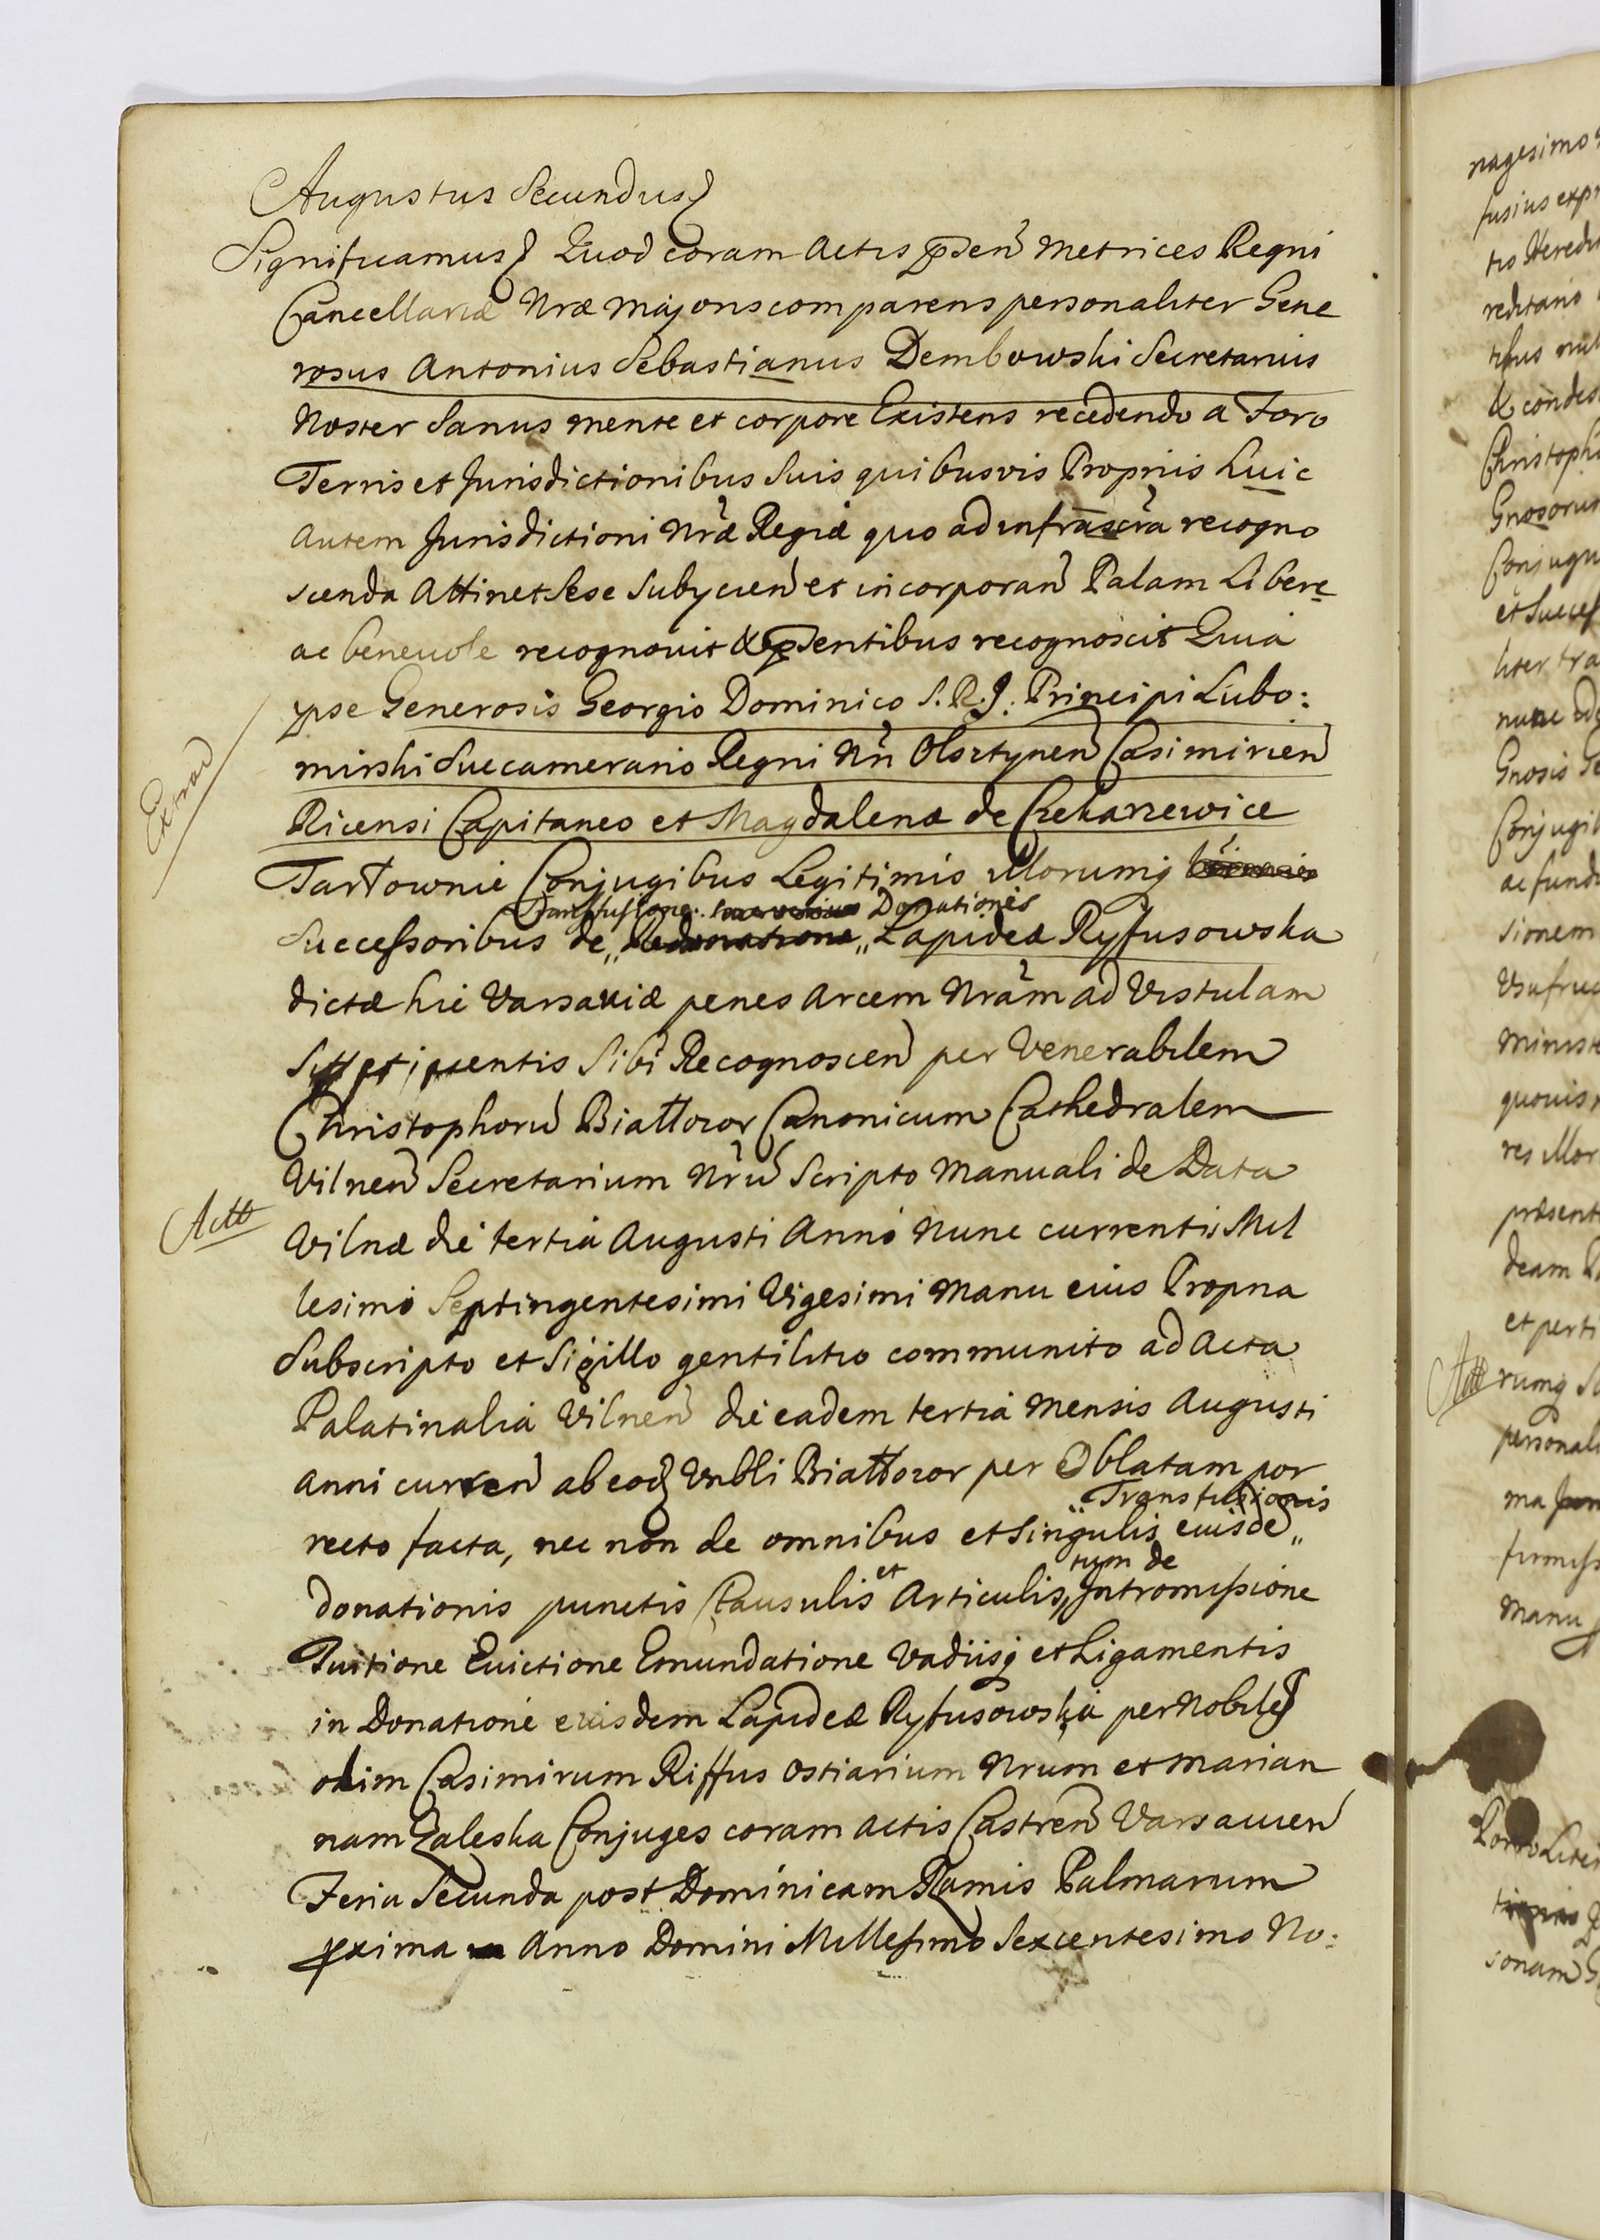 Augustus Secundus
Significamus Quod coram Actis pšen̄ Metrices Regni
Cancellariæ Nræ Majoris comparens personaliter Gene
rosus Antonius Sebastianus Dembowski Secretarius
Noster Sanus mente et corpore Existens recedendo a Foro
Terris et Jurisdictionibus Suis quibusvis Propriis huic
autem Jurisdictioni Nræ Regiæ quo ad infrascra recogno
scenda Attinet Sese Subycien et incorporan Palam Libere
ac benevole recognovit & psentibus recognoscit Quia
ipse Generosis Georgio Dominico S. R. J. Principi Lubo:
mirski Succamerario Regni Nrī Olsztynen Casimirien
Ricensi Capitaneo et Magdalenæ de Czekarzewice
Extrad
Tarłownie Conjugibus Legitimis Illorumq
Transfusione Donationis
Successoribus de „ Redonatione „ Lapideæ Ryfusowska
dictæ hic Varsaviæ penes Arcem Nram ad Vistulam
Sibi Recognoscen per Venerabilem
Christophorū Białłozor Canonicum Cathedralem
Vilnen Secretarium Nrū Scripto Manuali de Data
Actt
Vilnæ die tertia Augusti Anno Nunc currentis Mil
lesimo Septingentesimi Vigesimi Manu eius Propria
Subscripto et Sigillo gentilitio communito ad Acta
Palatinalia Vilnen die eadem tertia Mensis Augusti
Anni curren ab eod Vnbli Białłozor per Oblatam por
„ Transfusionis
recto facta, nec non de omnibus et singulis eiusde „
et tum de
donationis punctis Clausulis Articulis, Intromissione
Tuitione Evictione Emundatione Vadiisq et Ligamentis
in Donatione eiusdem Lapideæ Ryfusowska per Nobiles
olim Casimirum Riffus Ostiarium Nrum et Marian
nam Zaleska Conjuges coram Actis Castren Varsavien
Feria Secunda post Dominicam Ramis Palmarum
pxima Anno Domini Millesimo Sexcentesimo No:
nagesimo
fusius expr
tis Heredi
reditario
& condes
Christoph
Gnosorus
Conjugu
et Success
liter tra
nunc
Gnosis Ge
Conjugib
ac fundi
sionem
Vsufruc
Ministe
quovis
res Illor
præsent
deam R
et perti
Actt
rumq Su
personali
ma
firmiss
Manu
Porro Liter
sonam G